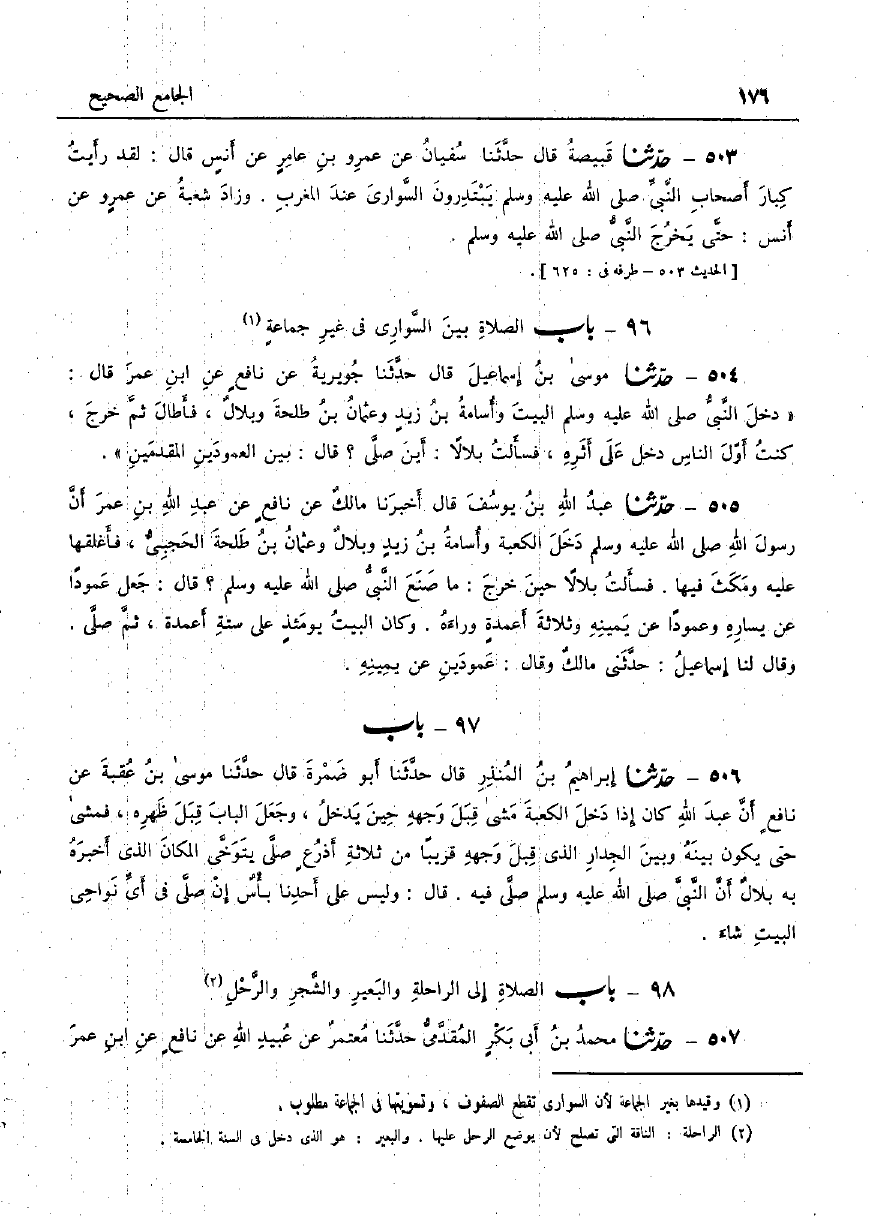 ١٧٦ الجامع الصحيح
٥٠٣ – حدّثنا قَبيصةُ قال حدَّثَنا سُفيانُ عن عمرِو بنِ عامِرٍ عن أنَسٍ قال : لقد رأيتُ
كِبارَ أصحابِ النَّبيِّ صلى الله عليه وسلم يَبْتَدِرونَ السَّوارىَ عندَ المغربِ . وزادَ شعبةُ عن عمرٍو عن
أنس : حتَّى يَخرُجَ النَّبيُّ صلى الله عليه وسلم .
[ الحديث ٥٠٣ – طرفه فى : ٦٢٥ ] .
٩٦ – باب الصلاةِ بينَ السَّوارِى فى غيرِ جماعةٍ (١)
٥٠٤ – حدّثنا موسىٰ بنُ إسماعيلَ قال حدَّثَنا جُويريةُ عن نافعٍ عنِ ابنِ عمرَ قال :
« دخلَ النَّبيُّ صلى الله عليه وسلم البيتَ وأُسامةُ بنُ زيدٍ وعثمانُ بنُ طلحةَ وبلالٌ ، فأطالَ ثمَّ خرجَ ،
كنتُ أوّلَ الناسِ دخل عَلَى أثَرِهِ ، فسألتُ بلالًا : أينَ صلَّى ؟ قال : بين العمودَينِ المقدمَينِ » .
٥٠٥ – حدّثنا عبدُ اللهِ بنُ يوسُفَ قال أخبرَنا مالكٌ عن نافعٍ عن عبدِ اللهِ بنِ عمرَ أنَّ
رسولَ اللهِ صلى الله عليه وسلم دَخَلَ الكعبة وأُسامةُ بنُ زيدٍ وبلالٌ وعثمانُ بنُ طَلحةَ الحَجبيُّ ، فأغلقها
عليه ومَكَثَ فيها . فسألتُ بلالًا حينَ خرجَ : ما صَنَعَ النَّبيُّ صلى الله عليه وسلم ؟ قال : جَعل عَمودًا
عن يسارِهِ وعمودًا عن يَمينِهِ وثلاثةَ أعمدةٍ وراءَهُ . وكان البيتُ يومَئذٍ على ستةِ أعمدة ، ثمَّ صلَّى .
وقال لنا إسماعيلُ : حدَّثَنى مالكٌ وقال : عَمودَينِ عن يمينِهِ .
٩٧ – باب
٥٠٦ – حدّثنا إبراهيمُ بنُ المُنذِرِ قال حدَّثَنا أبو ضَمْرةَ قال حدَّثَنا موسىٰ بنُ عُقبةَ عن
نافعٍ أنَّ عبدَ اللهِ كان إذا دَخلَ الكعبةَ مَشىٰ قِبَلَ وَجههِ حِينَ يَدخلُ ، وجَعَلَ البابَ قِبَلَ ظَهرِه ، فمشىٰ
حتى يكون بينَهُ وبينَ الجِدارِ الذى قِبلَ وَجههِ قريبًا من ثلاثةِ أذرُعٍ صلَّى يَتَوَخَّى المكانَ الذى أخبرَهُ
به بلالٌ أنَّ النَّبيَّ صلى الله عليه وسلم صلَّى فيه . قال : وليس على أحدِنا بأْسٌ إنْ صلَّى فى أىِّ نَواحِى
البيتِ شاء .
٩٨ – باب الصلاةِ إلى الراحلةِ والبَعيرِ والشَّجرِ والرَّحْلِ (٢)
٥٠٧ – حدّثنا محمدُ بنُ أبى بَكْرٍ المُقدَّمىُّ حدَّثَنا مُعتمرٌ عن عُبيدِ اللهِ عن نافعٍ عنِ ابنِ عمرَ
(١) وقيدها بغير الجماعة لأن السوارى تقطع الصفوف ، وتسويتها فى الجماعة مطلوب .
(٢) الراحلة : الناقة التى تصلح لأن يوضع الرحل عليها . والبعير : هو الذى دخل فى السنة الخامسة .